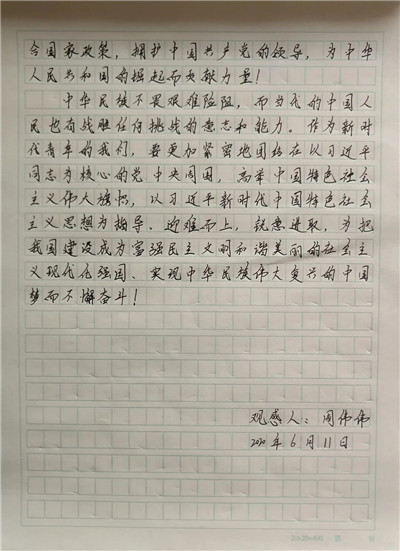 合国家政策，拥护中国共产党的领导，为中华
人民共和国的崛起而贡献力量！
中华民族不畏艰难险阻，而当代的中国人
民也有战胜任何挑战的意志和能力。作为新时
代青年的我们，要更加紧密地团结在以习近平
同志为核心的党中央周围，高举中国特色社会
主义伟大旗帜，以习近平新时代中国特色社会
主义思想为指导、迎难而上，锐意进取，为把
我国建设成为富强民主文明和谐美丽的社会主
义现代化强国、实现中华民族伟大复兴的中国
梦而不懈奋斗！
观感人：周伟伟
2020年6月11日
20×20=400